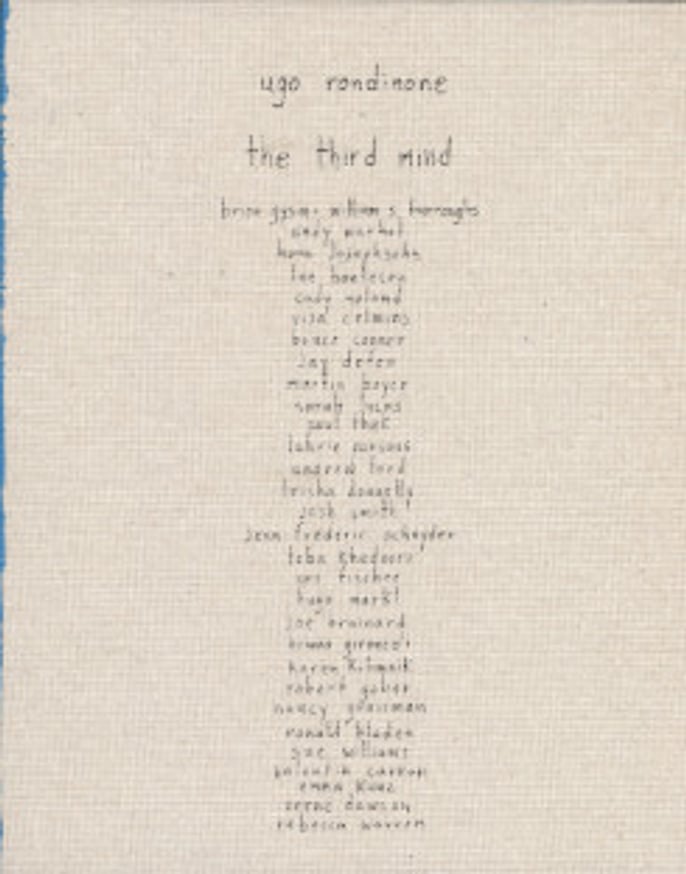 ugo rondinone
the third mind
brion gysin · william s. burroughs
andy warhol
hans josephsohn
lee bontecou
cady noland
vija celmins
bruce conner
jay defeo
martin boyce
sarah lucas
paul thek
laurie parsons
andrew lord
trisha donnelly
josh smith
jean frédéric schnyder
toba khedoori
urs fischer
hugo markl
joe brainard
bruno gironcoli
karen kilimnik
robert gober
nancy grossman
ronald bladen
sue williams
valentin carron
emma kunz
verne dawson
rebecca warren